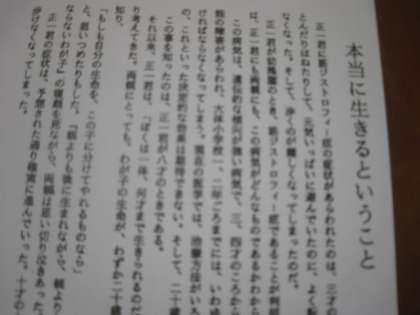 本当に生きるということ
正一君に筋ジストロフィー症の症状があらわれたのは、三才の
とんだりはねたりして、元気いっぱいに遊んでいたのに、よく転
なくなった。そして、歩くのが難しくなってしまったのだ。
正一君が幼稚園のとき、筋ジストロフィー症であることが判
は、正一君にも両親にも、この病気がどんなものであるかわから
この病気は、遺伝的な傾向が強い病気で、三、四才のころから
肢の障害があらわれ、大体小学校一、二年ごろまでには、いわゆ
ければならなくなってしまう。現在の医学では、治療方法がいろ
の、これといった決定的な効果は期待できない。そして、二十歳
この事を知ったのは、正一君が八才のときである。
それ以来、正一君は、「ぼくは一体、何才まで生きられるのだ
り考えてきた。両親にとっても、わが子の生命が、わずか二十歳
知り、
「もしも自分の生命を、この子に分けてやれるものなら」
と、思いつめたりもした。「親よりも後に生まれながら、親より
ならないわが子」の寝顔を見ながら、両親は思い切り泣きあった。
正一君の症状は、予想された通り確実に進んでいった。十才の
歩けなくなってしまった。